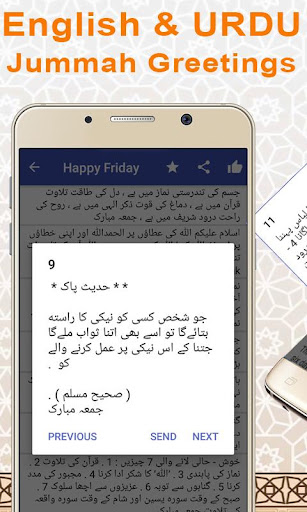 English & URDU
Jummah Greetings
Happy Friday
جسم کی تندرستی نماز میں ہے ، دل کی طاقت تلاوت
قرآن میں ہے ، دماغ کی قوت ذکر الہی میں ہے ، روح کی
راحت درود شریف میں ہے ، جمعہ مبارک
اسلام علیکم اللہ کی عطاؤں پر الحمداللہ اور اپنی خطاؤں
9
* * حدیث پاک *
جو شخص کسی کو نیکی کا راستہ
بتائےگا تو اسے بھی اتنا ثواب ملےگا
جتنا کے اس نیکی پر عمل کرنے والے
کو .
( صحیح مسلم ) .
جمعہ مبارک
PREVIOUS
SEND
NEXT
خوش - حالی لانے والی 7 چیزیں : 1 . قرآن کی تلاوت 2 .
نماز کی پابندی 3 . اللہ کا شکر ادا کرنا 4 . مجبور کی مدد
کرنا 5 . گناہوں سے توبہ 6 . عزیزوں سے اچھا سلوک 7 .
صبح کے وقت سورہ یسین اور شام کے وقت سورہ واقعہ
11
پہننا